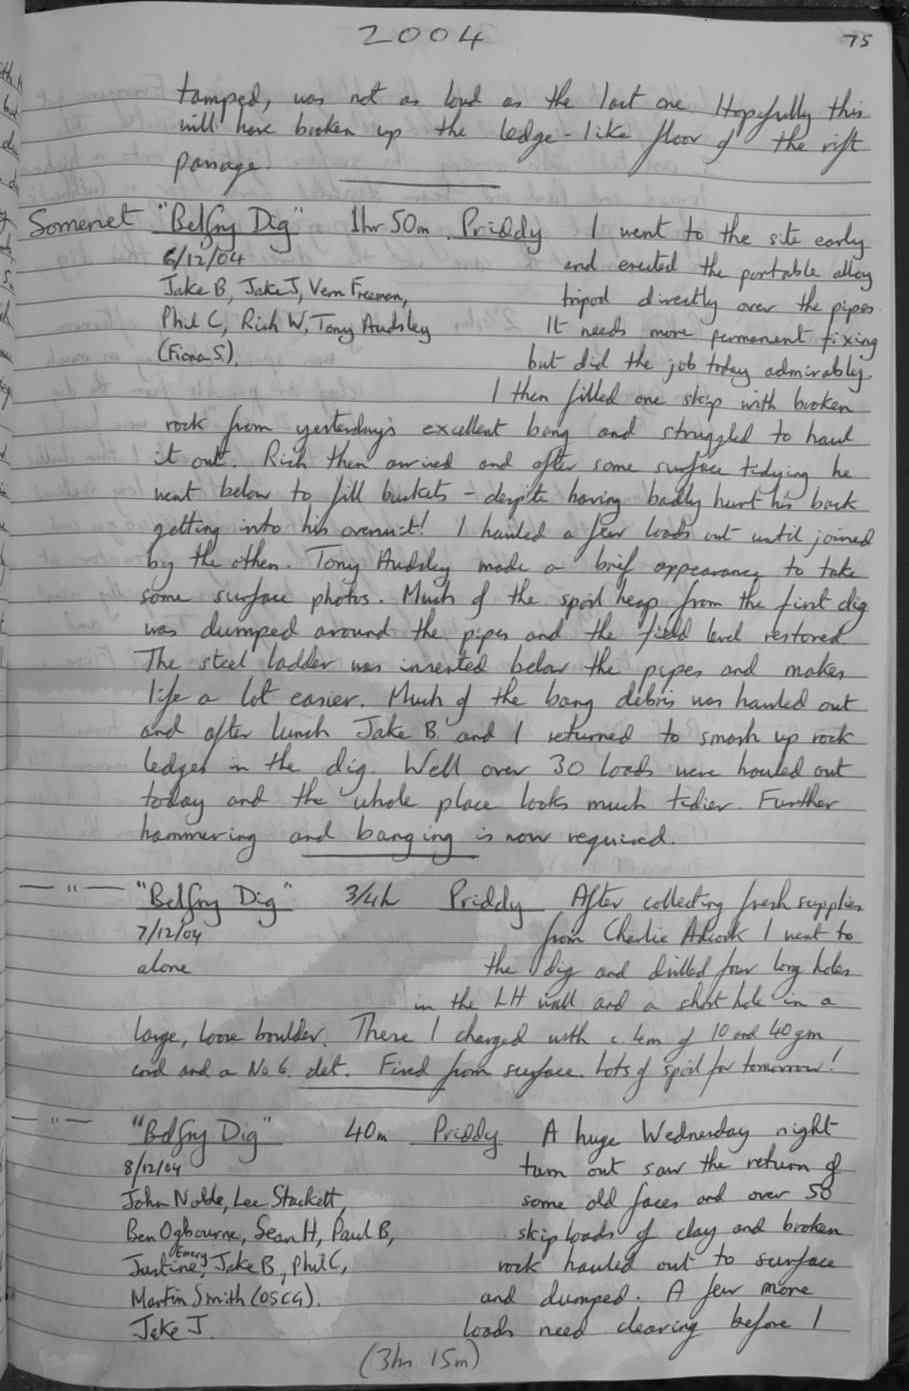 2004
75
tamped, was not as loud as the last one. Hopefully this
will have broken up the ledge-like floor of the rift
passage.
Somerset "Belfry Dig" 1hr 50m. Priddy I went to the site early
6/12/04 and erected the portable alloy
Jake B, Jake J, Vern Freeman, tripod directly over the pipes
Phil C, Rich W, Tony Audsley It needs more permanent fixing
(Fiona S). but did the job today admirably.
I then filled one skip with broken
rock from yesterday's excellent bang and struggled to haul
it out. Rich then arrived and after some surface tidying he
went below to fill buckets - despite having badly hurt his back
getting into his oversuit! I hauled a few loads out until joined
by the others. Tony Audsley made a brief appearance to take
some surface photos. Much of the spoil heap from the first dig
was dumped around the pipes and the field level restored
The steel ladder was inserted below the pipes and makes
life a lot easier. Much of the bang debris was hauled out
and after lunch Jake B and I returned to smash up rock
ledges in the dig. Well over 30 loads were hauled out
today and the whole place looks much tidier. Further
hammering and banging is now required.
— " — "Belfry Dig" 3/4h Priddy After collecting fresh supplies
7/12/04 from Charlie Adcock I went to
alone the dig and drilled four long holes
in the LH wall and a short hole in a
large, loose boulder. These I charged with c. 4m of 10 and 40 gm
cord and a No 6. det. Fired from surface. Lots of spoil for tomorrow!
— " — "Belfry Dig" 40m Priddy. A huge Wednesday night
8/12/04 turn out saw the return of
John Noble, Lee Stackett, some old faces and over 50
Ben Ogbourne, Sean H, Paul B, skip loads of clay and broken
Justine Emery, Jake B, Phil C, rock hauled out to surface
Martin Smith (OSCG). and dumped. A few more
Jake J. loads need clearing before I
(3hr 15m)